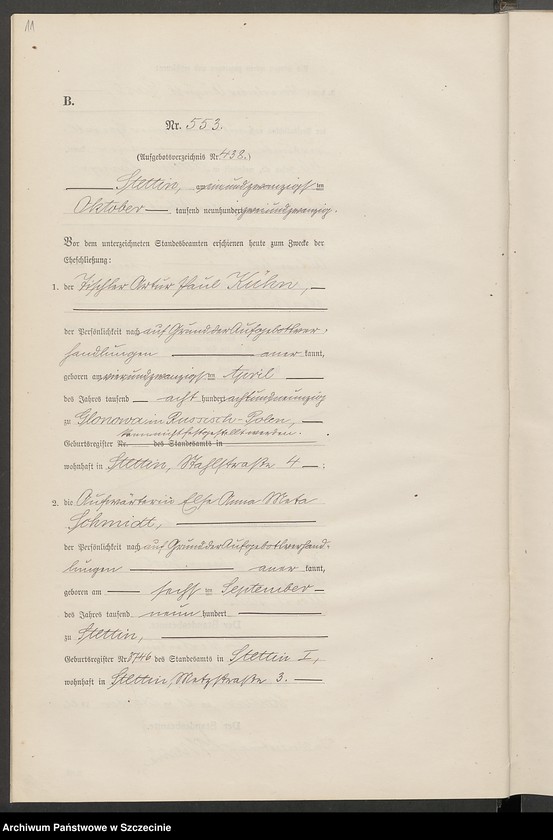 11
B.
Nr. 553.
(Aufgebotsverzeichnis Nr. 438.)
Stettin, am einundzwanzigsten
Oktober tausend neunhundert zweiundzwanzig.
Vor dem unterzeichneten Standesbeamten erschienen heute zum Zwecke der
Eheschließung:
1. der Tischler Artur Paul Kühn,
der Persönlichkeit nach auf Grund der Aufgebotsver-
handlungen anerkannt,
geboren am vierundzwanzigsten April
des Jahres tausend acht hundert achtundneunzig
zu Glonowa in Russisch-Polen,
kann nicht festgestellt werden.
Geburtsregister Nr. des Standesamts in
wohnhaft in Stettin, Stahlstraße 4 ;
2. die Aufwärterin Else Anna Meta
Schmidt,
der Persönlichkeit nach auf Grund der Aufgebotsverhand-
lungen anerkannt,
geboren am sechsten September
des Jahres tausend neun hundert
zu Stettin,
Geburtsregister Nr. 3746 des Standesamts in Stettin I,
wohnhaft in Stettin, Metzstraße 3.
Archiwum Państwowe w Szczecinie